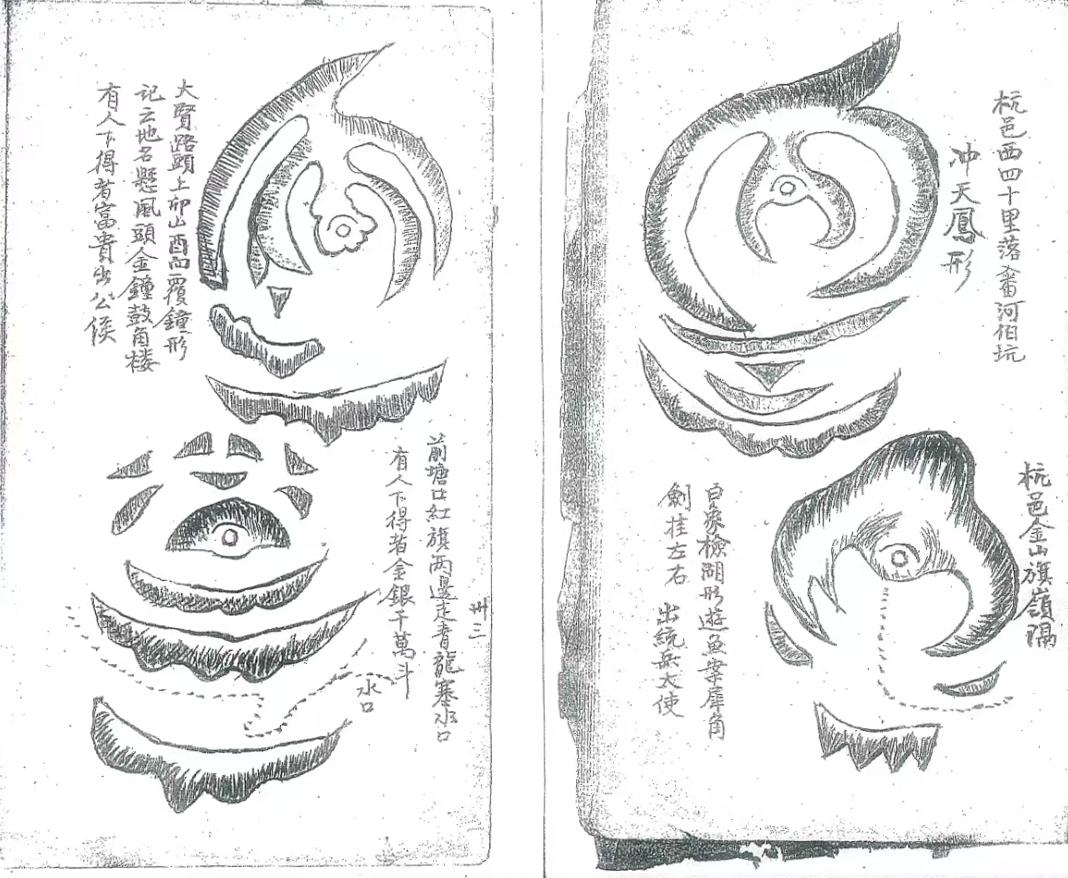 杭邑西四十里落畲河伯坑
冲天鳳形
杭邑金山旗嶺隔
白象捲湖形遊魚案犀角
劍挂左右 出統兵大使
大賢路頭上卯山酉向覆鐘形
記云地名懸風頭金鐘鼓角楼
有人下得者富貴出公侯
前塘口紅旗两邊走青龍塞水口
有人下得者金銀千萬斗
水口
卅三